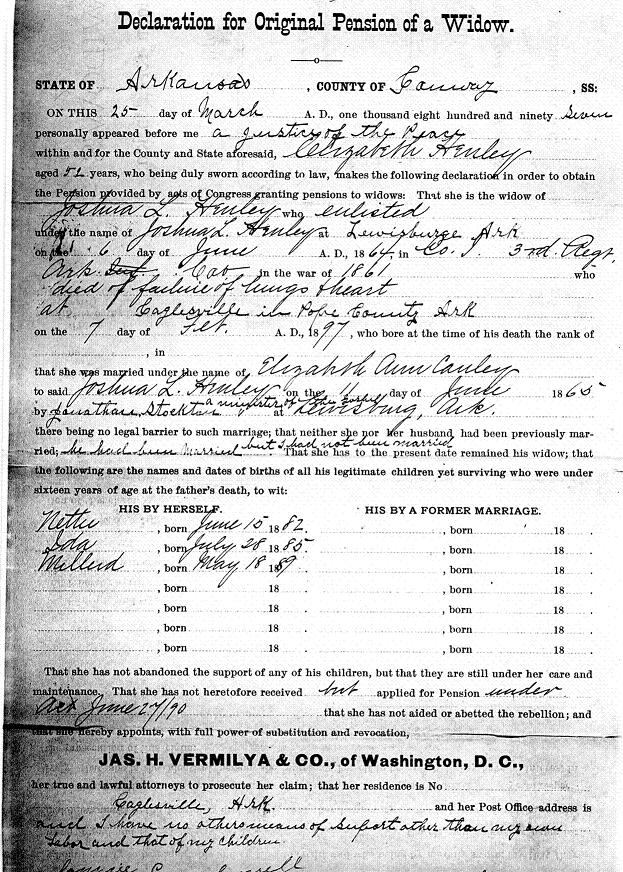 Declaration for Original Pension of a Widow.
STATE OF Arkansas, COUNTY OF Conway, SS:
ON THIS 25 day of March A. D., one thousand eight hundred and ninety seven
personally appeared before me a justice of the Peace
within and for the County and State aforesaid, Elizabeth Henley
aged 52 years, who being duly sworn according to law, makes the following declaration in order to obtain
the Pension provided by acts of Congress granting pensions to widows: That she is the widow of
Joshua L. Henley who enlisted
under the name of Joshua L. Henley at Lewisburge Ark
on the 6 day of June A. D., 1864, in Co. I. 3rd Regt,
Ark. Cav in the war of 1861 who
died of failure of lungs & heart
at Eaglesville in Pope County Ark
on the 7 day of Feb. A. D., 1897, who bore at the time of his death the rank of
, in
that she was married under the name of Elizabeth Ann Canley
to said Joshua L. Henley on the 11 day of June 1865
by Jonathan Stockton a minister of the Gospel at Lewisburg, Ark.
there being no legal barrier to such marriage; that neither she nor her husband, had been previously mar-
ried; he had been married but I had not been married That she has to the present date remained his widow; that
the following are the names and dates of births of all his legitimate children yet surviving who were under
sixteen years of age at the father's death, to wit:
HIS BY HERSELF. HIS BY A FORMER MARRIAGE.
Nettie, born June 15 1882. , born 18 .
Ida, born July 28 1885. , born 18 .
Millerd, born May 18 1889 , born 18 .
, born 18 . , born 18 .
, born 18 . , born 18 .
, born 18 . , born 18 .
, born 18 . , born 18 .
That she has not abandoned the support of any of his children, but that they are still under her care and
maintenance. That she has not heretofore received but applied for Pension under
Act June 27/90 that she has not aided or abetted the rebellion; and
that she hereby appoints, with full power of substitution and revocation,
JAS. H. VERMILYA & CO., of Washington, D. C.,
her true and lawful attorneys to prosecute her claim; that her residence is No
Eaglesville, Ark. and her Post Office address is
and I have no others means of support other than my own
labor and that of my children